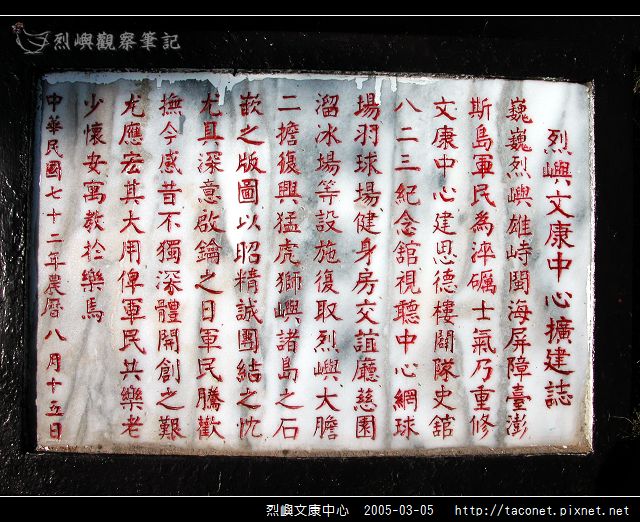 烈嶼觀察筆記
烈嶼文康中心擴建誌
巍巍烈嶼雄峙閩海屏障臺澎
斯島軍民為淬礪士氣乃重修
文康中心建恩德樓闢隊史舘
八二三紀念舘視聽中心網球
場羽球場健身房交誼廳慈園
溜冰場等設施復取烈嶼大膽
二擔復興猛虎獅嶼諸島之石
嵌之版圖以昭精誠團結之忱
尤具深意啟鑰之日軍民騰歡
撫今感昔不獨深體開創之艱
尤應宏其大用俾軍民共樂老
少懷安寓教於樂焉
中華民國七十二年農曆八月十五日
烈嶼文康中心 2005-03-05 http://taconet.pixnet.net